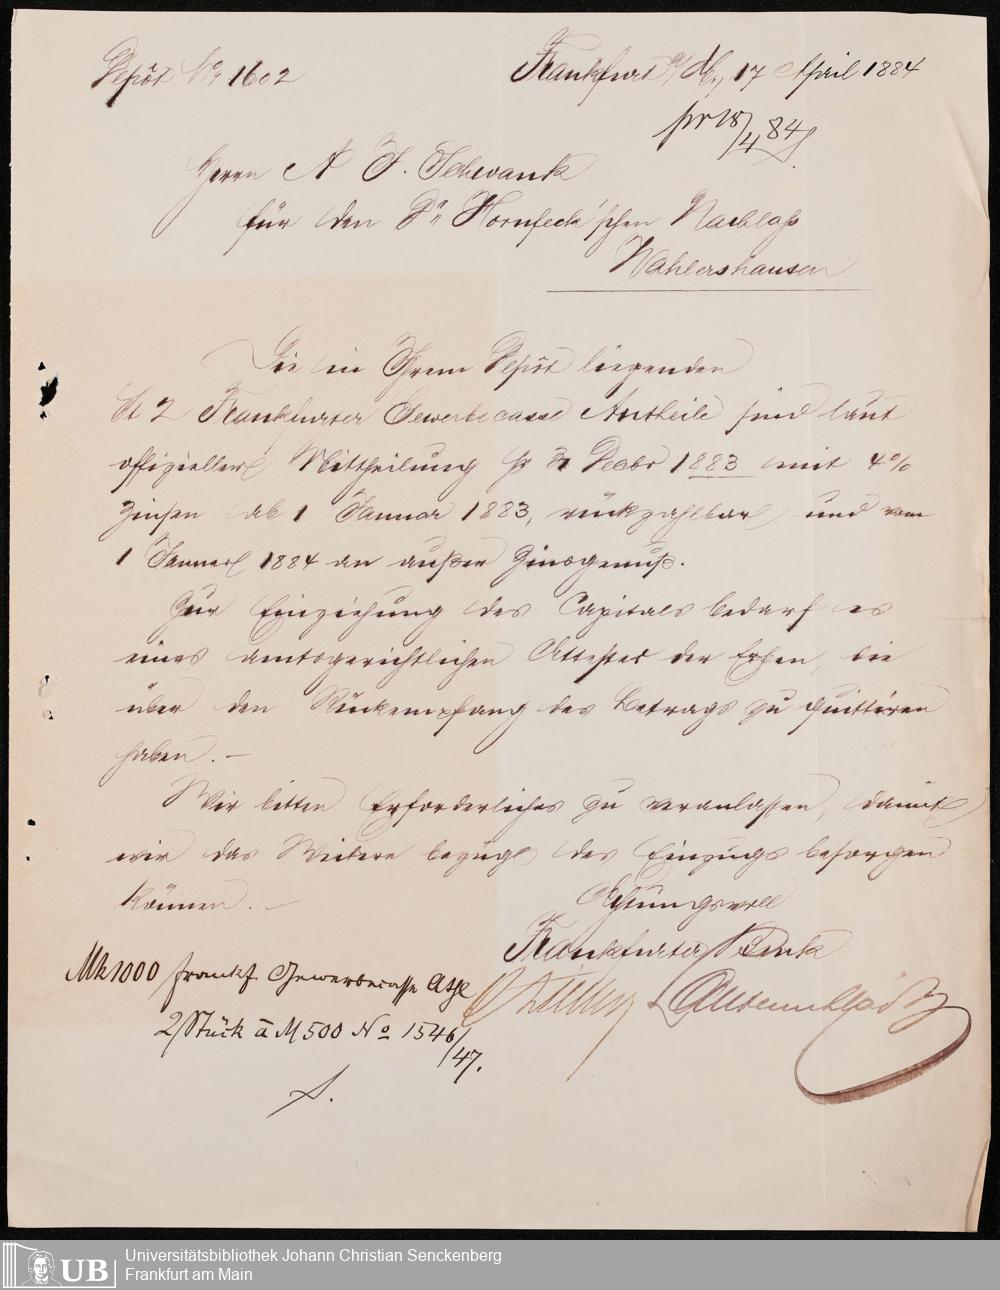 Depôt No 1602
Frankfurt a/M., 17 April 1884
pr 18/4 84
Herrn A F. Schwank
für den Dr. Hornfeck'schen Nachlaß
Wahlershausen
Die in Ihrem Depôt liegenden
St 2 Frankfurter Gewerbecasse Antheile sind laut
offizieller Mittheilung Decbr 1883 mit 4%
Zinsen ab 1 Januar 1883, rückzahlbar und vom
1 Januar 1884 an außer Zinsgenuß.
Zur Einziehung des Capitals bedarf es
eines amtsgerichtlichen Attestes der Erben, die
über den Rückempfang des Betrags zu quittiren
haben. —
Wir bitten Erforderliches zu veranlassen, damit
wir das Weitere bezügl des Einzugs besorgen
können. —
Achtungsvoll
Frankfurter Bank
Mk 1000 frankf. Gewerbecasse Athl
2/Stück à M 500 No 1546/47.
Universitätsbibliothek Johann Christian Senckenberg
Frankfurt am Main
UB